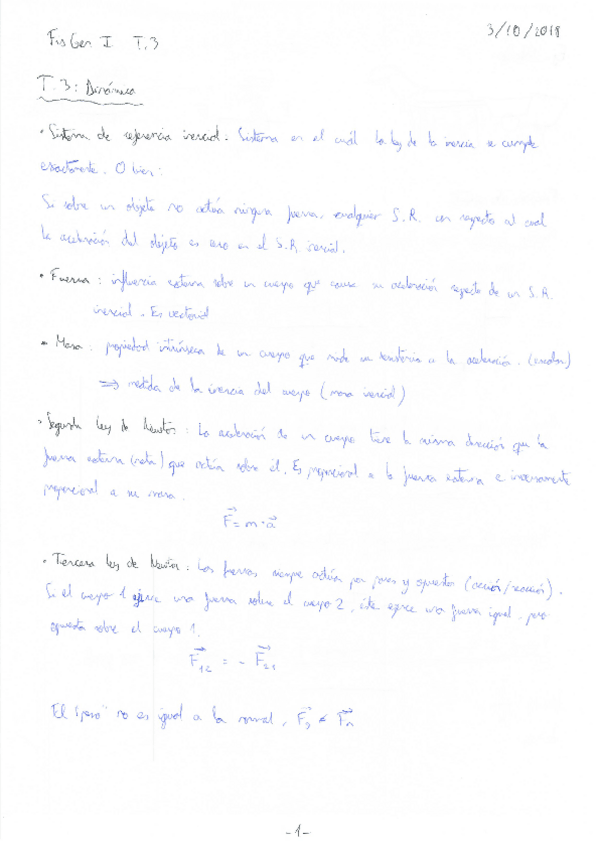 Fis Gen I T.3
3/10/2018
T.3: Dinámica
• Sistema de referencia inercial: Sistema en el cuál la ley de la inercia se cumple
exactamente. O bien:
Si sobre un objeto no actúa ninguna fuerza, cualquier S.R. con respecto al cual
la aceleración del objeto es cero en el S.R. inercial.
• Fuerza: influencia externa sobre un cuerpo que causa su aceleración respecto de un S.R.
inercial. Es vectorial
• Masa: propiedad intrínseca de un cuerpo que mide su resistencia a la aceleración. (escalar)
⟹ medida de la inercia del cuerpo (masa inercial)
• Segunda Ley de Newton: La aceleración de un cuerpo tiene la misma dirección que la
fuerza externa (neta) que actúa sobre él. Es proporcional a la fuerza externa e inversamente
proporcional a su masa.
F⃗ = m·a⃗
• Tercera Ley de Newton: Las fuerzas siempre actúan por pares y opuestas (acción/reacción).
Si el cuerpo 1 ejerce una fuerza sobre el cuerpo 2, éste ejerce una fuerza igual, pero
opuesta sobre el cuerpo 1.
F⃗₁₂ = - F⃗₂₁
El "peso" no es igual a la normal, F⃗g ≠ F⃗n
-1-